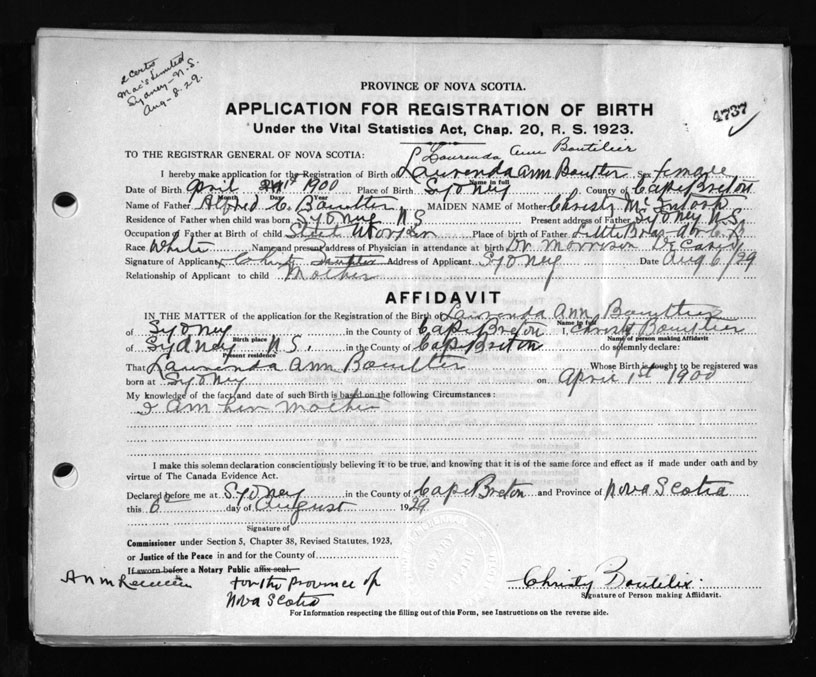 2 Certs
Mac's Limited
Sydney - N.S.
Aug - 8. 29.
PROVINCE OF NOVA SCOTIA.
APPLICATION FOR REGISTRATION OF BIRTH
4737
Under the Vital Statistics Act, Chap. 20, R. S. 1923.
Laurenda Ann Boutilier
TO THE REGISTRAR GENERAL OF NOVA SCOTIA:
I hereby make application for the Registration of Birth of Laurenda Ann Boutlier Sex female
Name in full
Date of Birth April 1st 1900 Place of Birth Sydney County of Cape Breton
Month Day Year
Name of Father Alfred C. Boutlier MAIDEN NAME of Mother Christy McIntosh
Residence of Father when child was born Sydney NS Present address of Father Sydney N.S.
Occupation of Father at Birth of child Steel Worker Place of birth of Father Little Bras dor C.B
Race White Name and present address of Physician in attendance at birth Dr. Morrison Deceased
Signature of Applicant x Christy Address of Applicant Sydney Date Aug 6/29
Relationship of Applicant to child Mother
AFFIDAVIT
IN THE MATTER of the application for the Registration of the Birth of Laurenda Ann Bouttier
Name in full
of Sydney in the County of Cape Breton I, Christy Boutlier
Birth place Name of person making Affidavit
of Sydney N.S. in the County of Cape Breton do solemnly declare:
Present residence
That Laurenda Ann Boutlier Whose Birth is sought to be registered was
born at Sydney on April 1st 1900
My knowledge of the fact and date of such Birth is based on the following Circumstances:
I Am her mother
I make this solemn declaration conscientiously believing it to be true, and knowing that it is of the same force and effect as if made under oath and by
virtue of The Canada Evidence Act.
Declared before me at Sydney in the County of Cape Breton and Province of Nova Scotia
this 6 day of August 1929
Signature of
Commissioner under Section 5, Chapter 38, Revised Statutes, 1923,
or Justice of the Peace in and for the County of
If sworn before a Notary Public affix seal.
for the Province of
Nova Scotia
Christy Boutilier
Signature of Person making Affidavit.
For Information respecting the filling out of this Form, see Instructions on the reverse side.